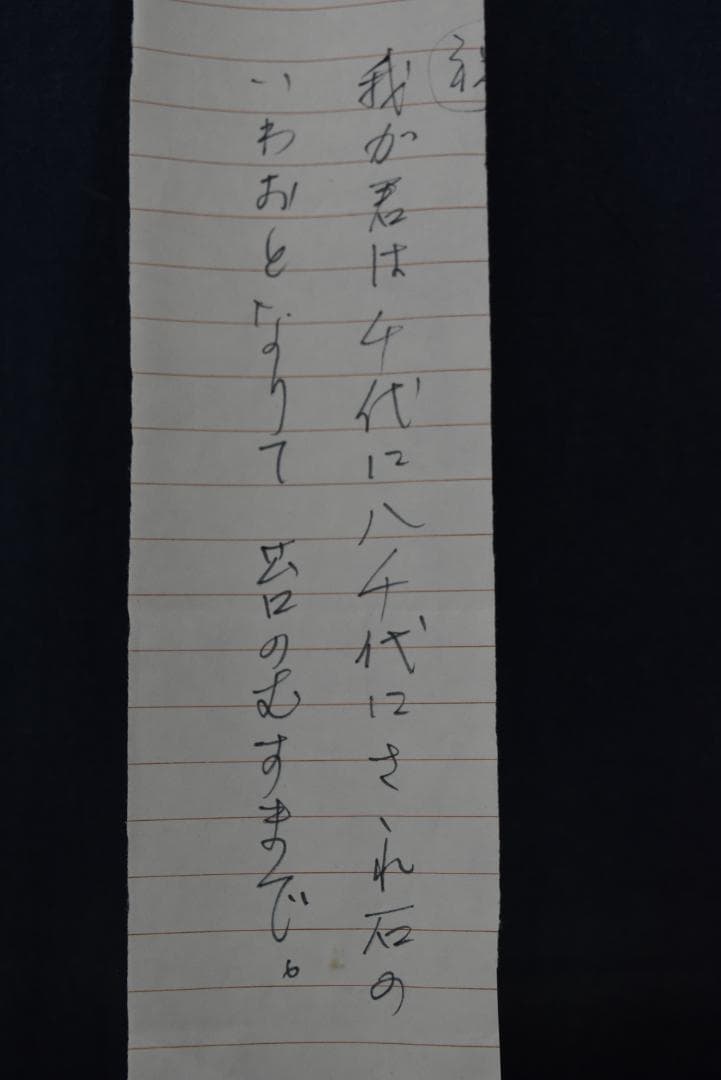 我が君は千代に八千代にさゝれ石の
いわおとなりて　苔のむすまで。